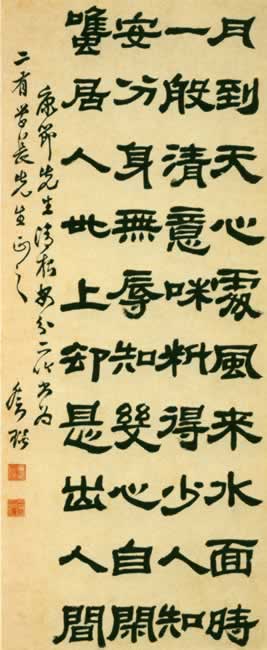 月到天心處風来水面時
一般清意味料得少人知
安分身無辱知幾心自閑
雖居人世上却是出人間
康節先生清夜安分二
二有学長先生正之